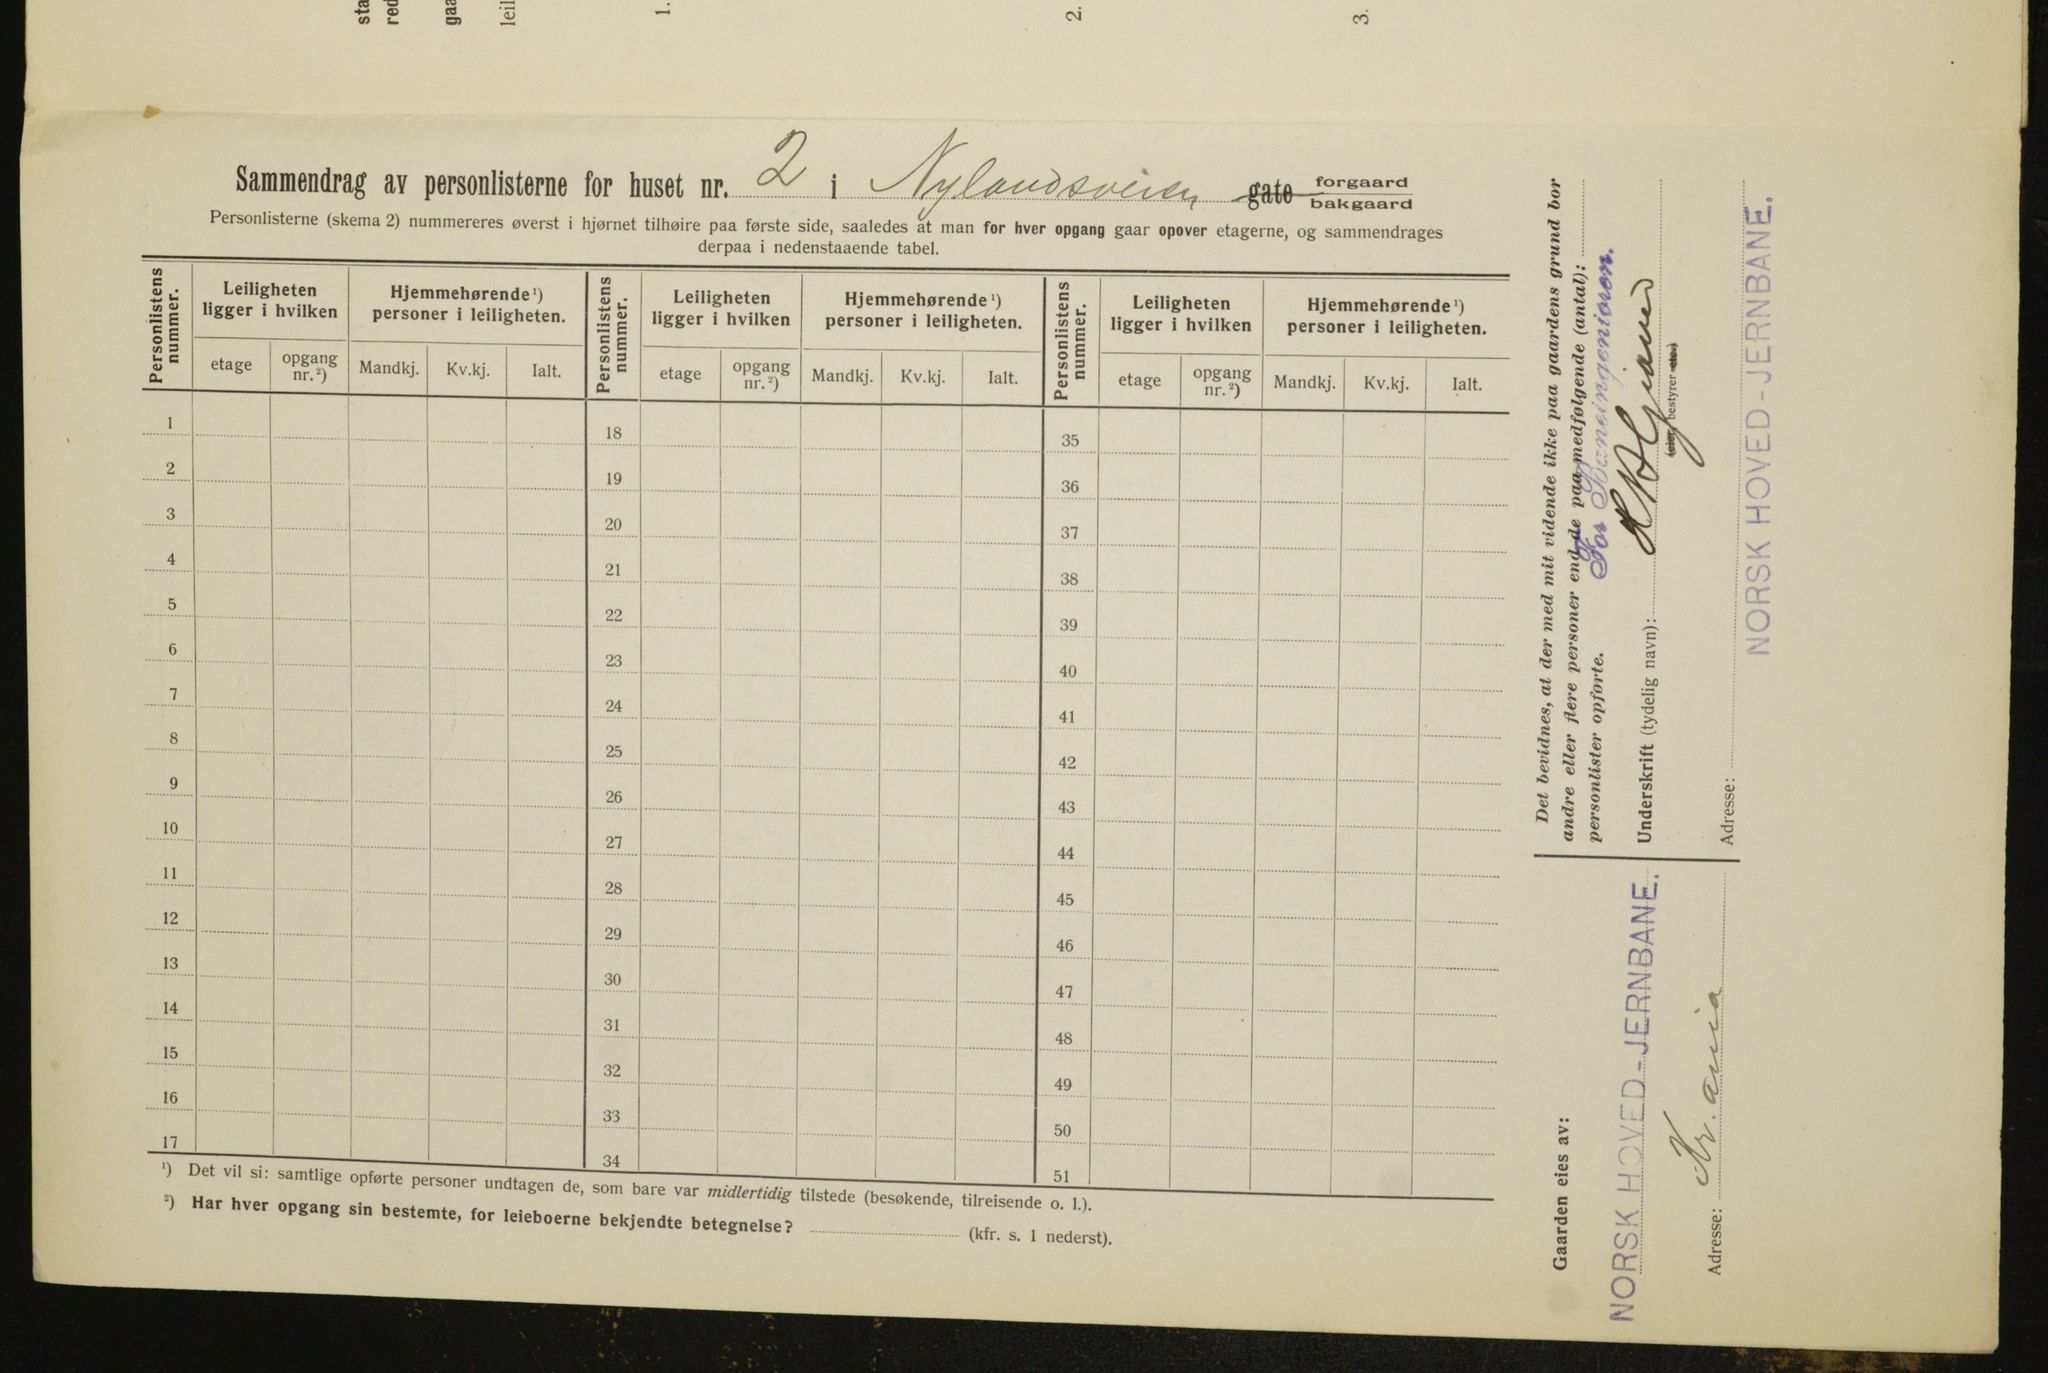 sta
red
gaa
leil
1.
2.
3.
Sammendrag av personlisterne for huset nr. 2 i Nylandsveien gate forgaard
bakgaard
Personlisterne (skema 2) nummereres øverst i hjørnet tilhøire paa første side, saaledes at man for hver opgang gaar opover etagerne, og sammendrages
derpaa i nedenstaaende tabel.
Personlistens nummer. Leiligheten ligger i hvilken Hjemmehørende ¹) personer i leiligheten. Personlistens nummer. Leiligheten ligger i hvilken Hjemmehørende ¹) personer i leiligheten. Personlistens nummer. Leiligheten ligger i hvilken Hjemmehørende ¹) personer i leiligheten.
etage opgang nr. ²) Mandkj. Kv.kj. Ialt. etage opgang nr. ²) Mandkj. Kv.kj. Ialt. etage opgang nr. ²) Mandkj. Kv.kj. Ialt.
1 18 35
2 19 36
3 20 37
4 21 38
5 22 39
6 23 40
7 24 41
8 25 42
9 26 43
10 27 44
11 28 45
12 29 46
13 30 47
14 31 48
15 32 49
16 33 50
17 34 51
¹) Det vil si: samtlige opførte personer undtagen de, som bare var midlertidig tilstede (besøkende, tilreisende o. l.).
²) Har hver opgang sin bestemte, for leieboerne bekjendte betegnelse? (kfr. s. 1 nederst).
Det bevidnes, at der med mit vidende ikke paa gaardens grund bor
andre eller flere personer end de paa medfølgende (antal):
personlister opførte.
For Baneingeniøren.
Underskrift (tydelig navn):
(eier, bestyrer etc.)
Adresse:
NORSK HOVED-JERNBANE.
Gaarden eies av:
NORSK HOVED-JERNBANE.
Adresse: Kr.ania